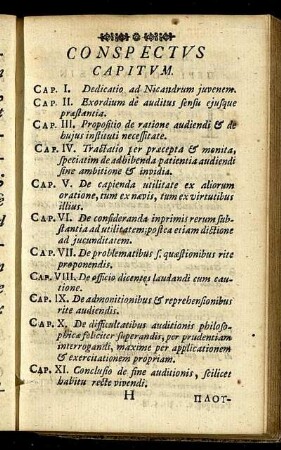 CONSPECTVS
CAPITVM.
CAP. I. Dedicatio ad Nicandrum juvenem.
CAP. II. Exordium de auditus sensu ejusque
præstantia.
CAP. III. Propositio de ratione audiendi & de
hujus instituti necessitate.
CAP. IV. Tractatio per præcepta & monita,
speciatim de adhibenda patientia audiendi
sine ambitione & invidia.
CAP. V. De capienda utilitate ex aliorum
oratione, tum ex nævis, tum ex virtutibus
illius.
CAP. VI. De consideranda inprimis rerum sub-
stantia ad utilitatem; postea etiam dictione
ad jucunditatem.
CAP. VII. De problematibus s. quæstionibus rite
proponendis.
CAP. VIII. De officio dicentes laudandi cum cau-
tione.
CAP. IX. De admonitionibus & reprehensionibus
rite audiendis.
CAP. X. De difficultatibus auditionis philoso-
phicæ feliciter superandis, per prudentiam
interrogandi, maxime per applicationem
& exercitationem propriam.
CAP. XI. Conclusio de fine auditionis, scilicet
habitu recte vivendi.
H ΠΛΟΥ-